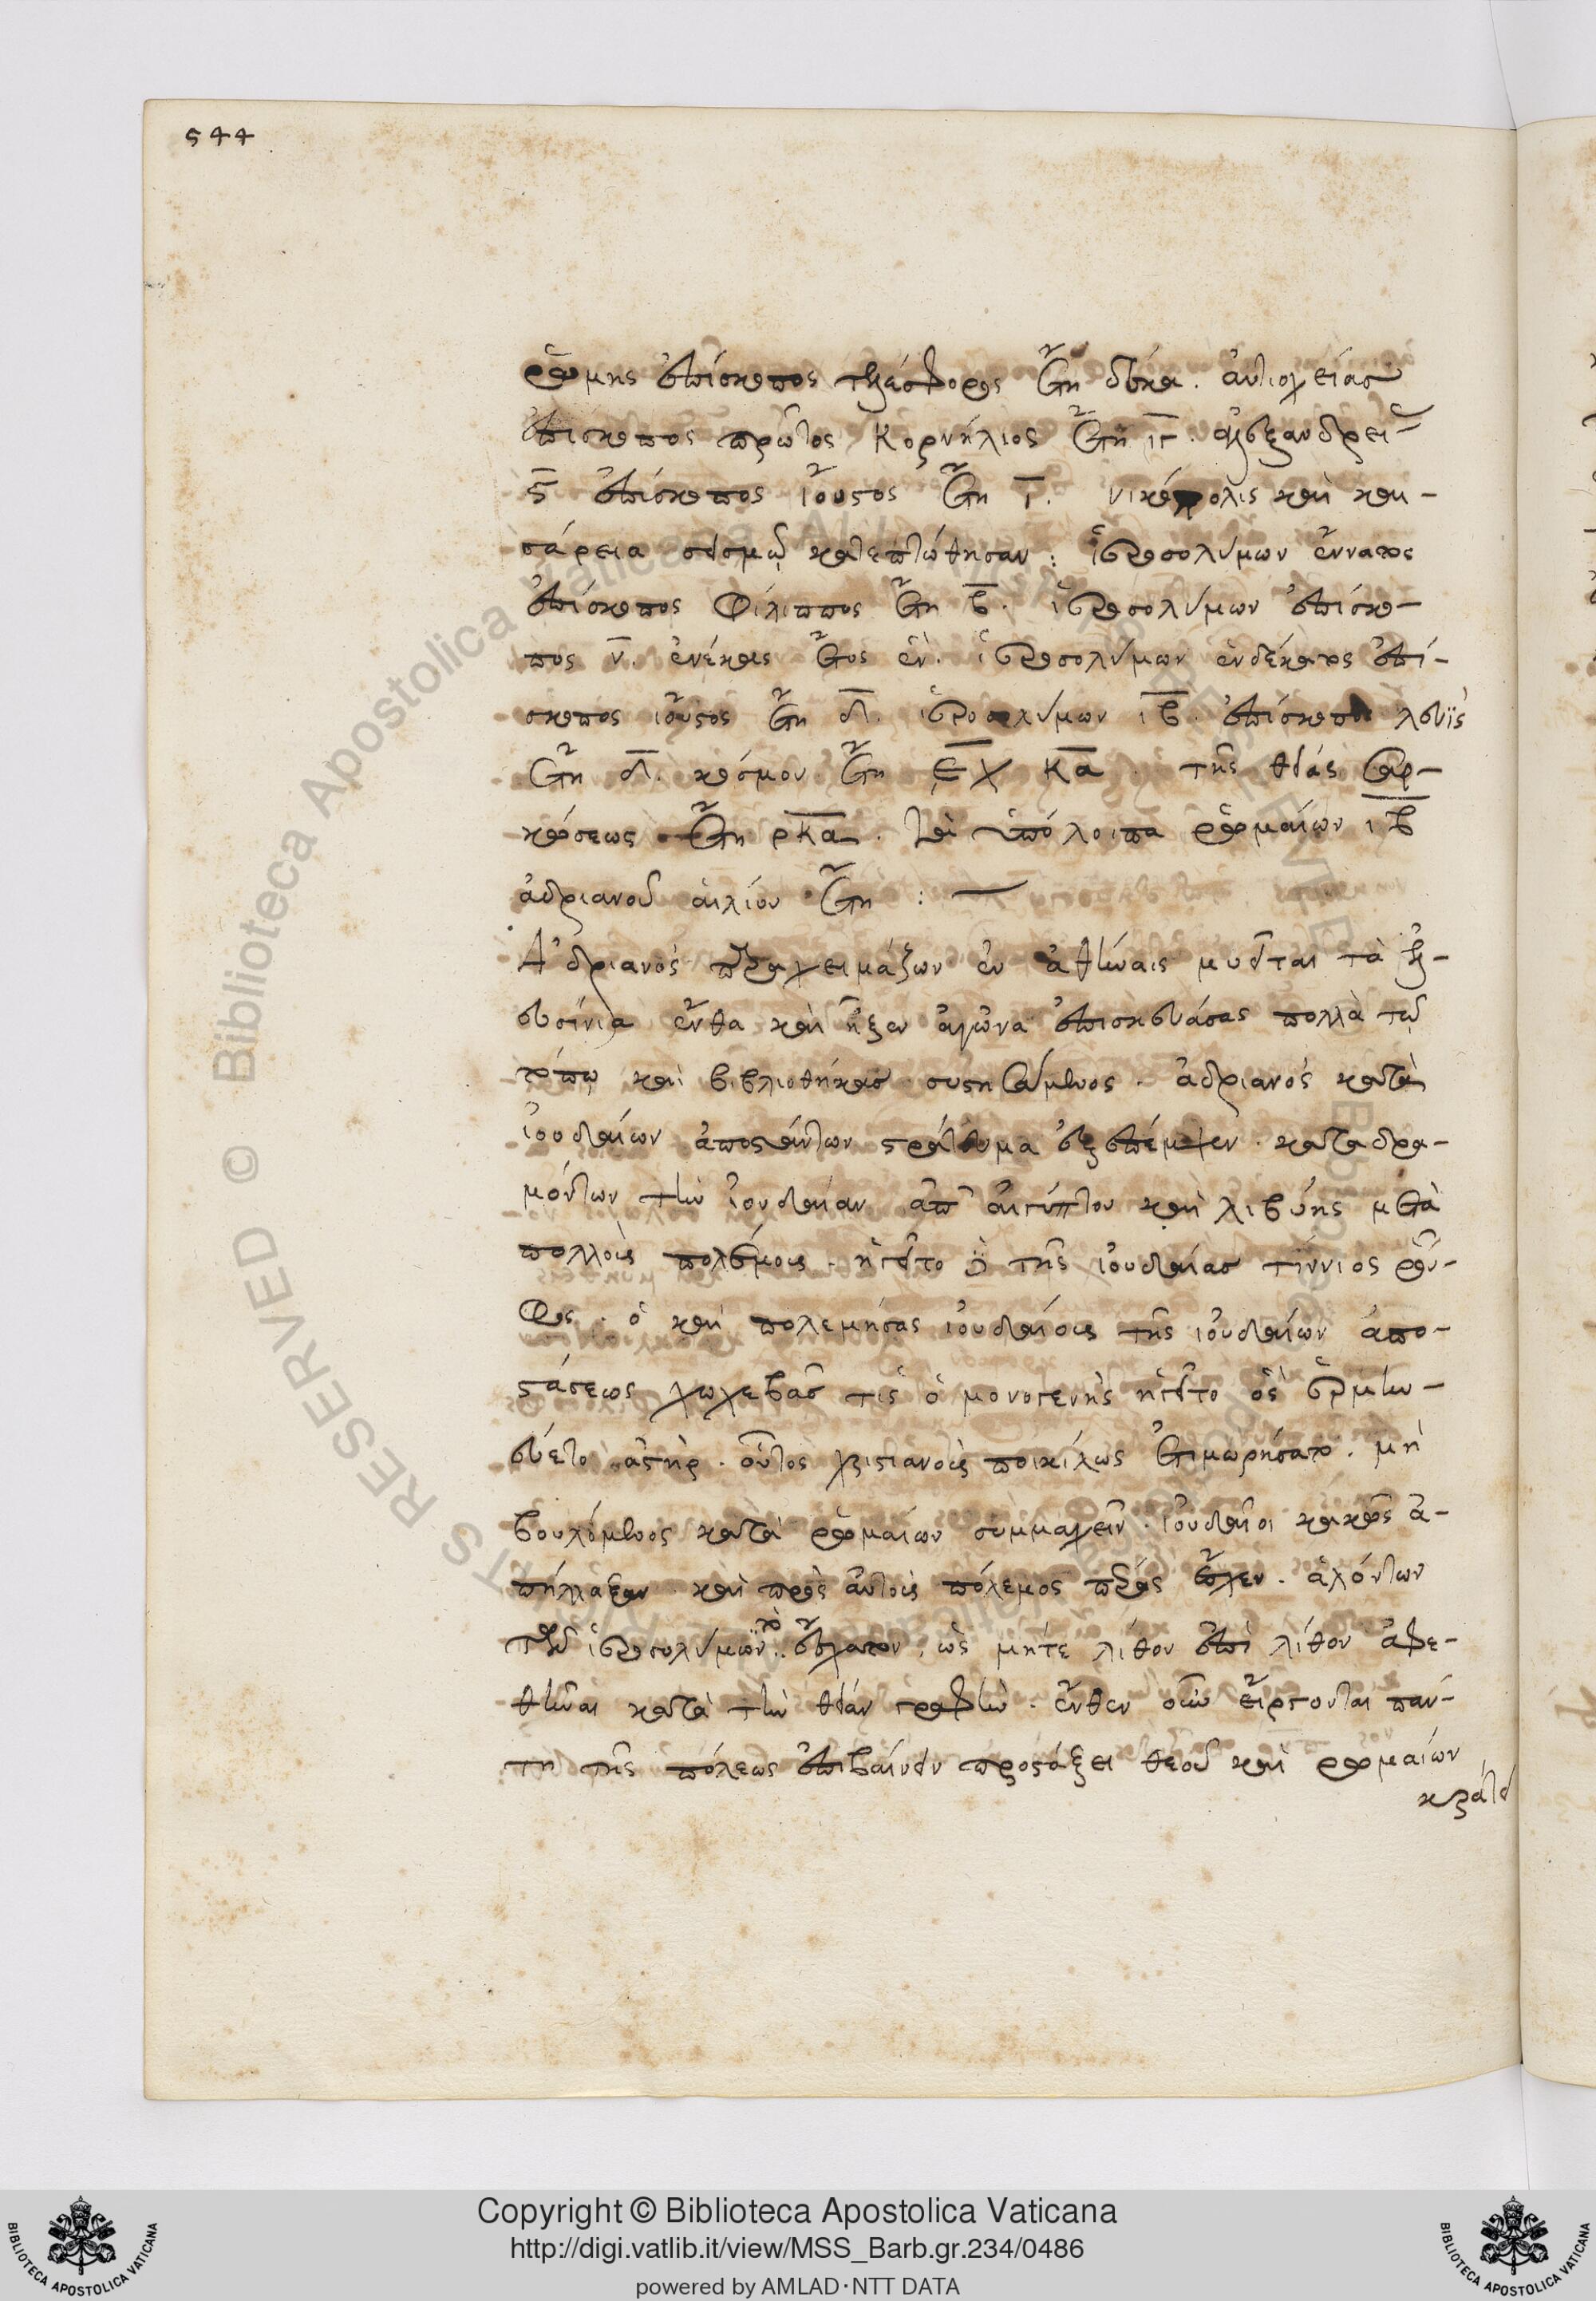 544
ῥώμης ἐπίσκοπος τελέσφορος ἔτη δέκα. ἀντιοχείας
ἐπίσκοπος πρῶτος κορνήλιος ἔτη ιγ. ἀλεξανδρεί
ς ἐπίσκοπος ἰοῦστος ἔτη ι. νικόπολις καὶ και-
σάρεια σεσμῷ κατεπτώθησαν: ἱεροσολύμων ἔννατος
ἐπίσκοπος Φίλιππος ἔτη β. ἱεροσολύμων ἐπίσκο-
πος ν. ἔτος ἓν. ἱεροσολύμων ἑνδέκατος ἐπί-
σκοπος ἰοῦστος ἔτη δ. ἱεροσολύμων ιβ. ἐπίσκοπος λευὶς
ἔτη δ. κόσμου ἔτη ͵εχκα. τῆς θείας σαρ-
κώσεως ἔτη ρκα. τὰ ὑπόλοιπα ῥωμαίων ιβ
ἀδριανοῦ αἰλίου ἔτη :
Ἀδριανὸς παραχειμάζων ἐν ἀθήναις μυεῖται τὰ ἐλ-
ευσίνια ἔνθα καὶ ἦξεν ἀγῶνα ἐπισκευάσας πολλὰ τῷ
τόπῳ καὶ βιβλιοθήκας συστησάμενος. ἀδριανὸς κατὰ
ἰουδαίων ἀποστάντων στράτευμα ἐξέπεμψεν. καταδρα-
μόντων τὴν ἰουδαίαν ἀπ' αἰγύπτου καὶ λιβύης μετὰ
πολλοὺς πολέμους. ἡγεῖτο δὲ τῆς ἰουδαίας τίννιος ῥοῦ-
φος. ὁ καὶ πολεμήσας ἰουδαίους τῆς ἰουδαίων ἀπο-
στάσεως χωχεβᾶς τὶς ὁ μονογενὴς ἡγεῖτο ὃς ἑρμην-
εύετο ἀστήρ. οὗτος χριστιανοὺς ποικίλως ἐτιμωρήσατο. μὴ
βουλόμενος κατὰ ῥωμαίων συμμαχεῖν. ἰουδαῖοι κακῶς ἀ-
πήλλαξαν. καὶ πρὸς αὐτοὺς πόλεμος πέρας ἔσχεν. ἁλόντων
τῶν ἱεροσολύμων. τὸ ἔσχατον. ὡς μήτε λίθον ἐπὶ λίθον ἀφε-
θῆναι κατὰ τὴν θείαν γραφὴν. ἔνθεν οὖν εἴργονται παν-
τη τῆς πόλεως ἐπιβαίνειν προστάξει θεοῦ καὶ ῥωμαίων
κράτει
Copyright © Biblioteca Apostolica Vaticana
http://digi.vatlib.it/view/MSS_Barb.gr.234/0486
powered by AMLAD·NTT DATA
BIBLIOTECA APOSTOLICA VATICANA
BIBLIOTECA APOSTOLICA VATICANA